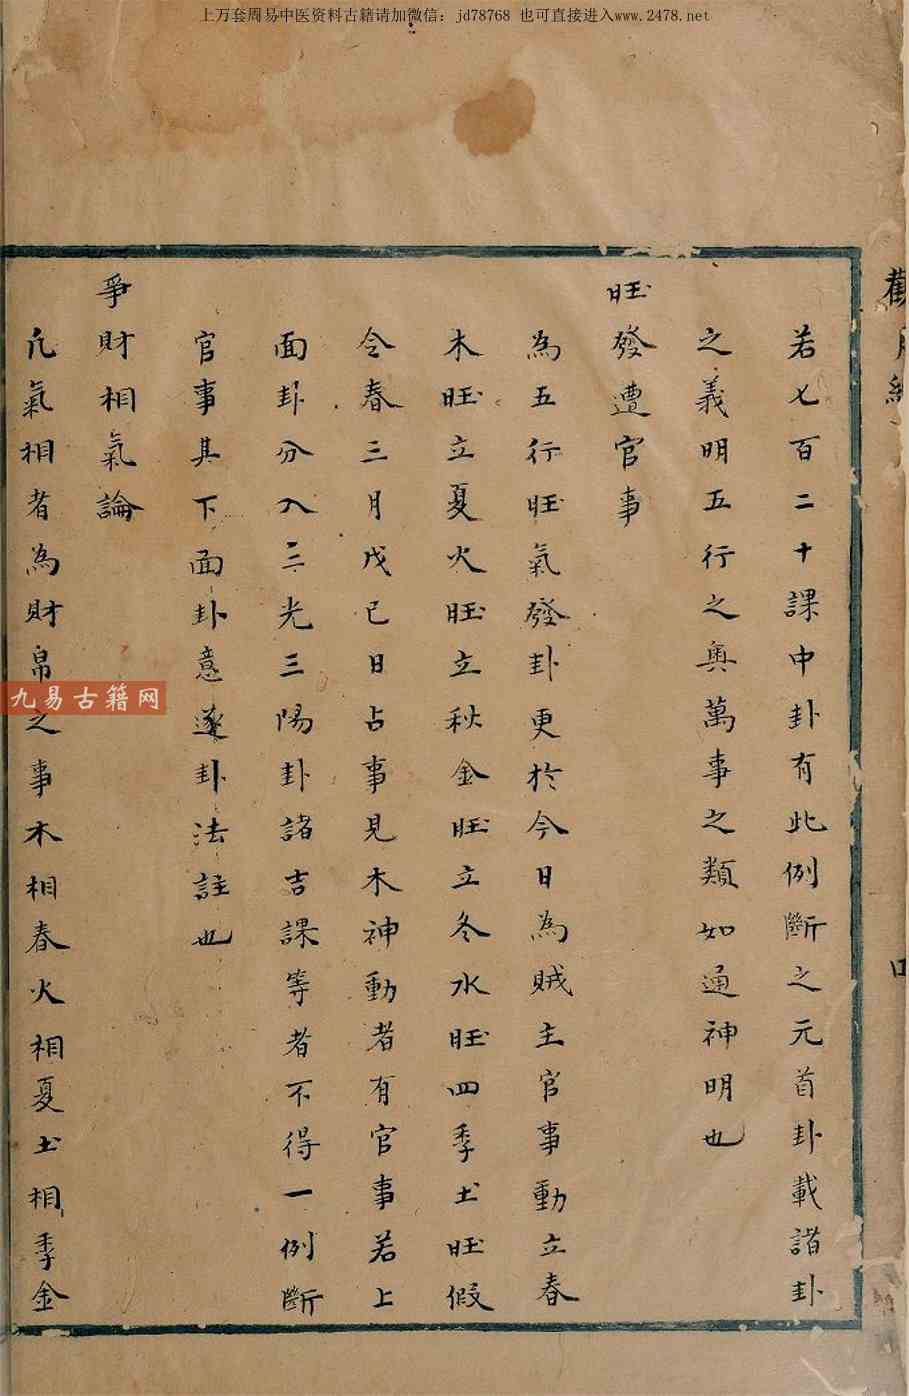 上万套周易中医资料古籍请加微信：jd78768 也可直接进入www.2478.net
若七百二十課中卦有此例斷之元首卦載諸卦
之義明五行之奧萬事之類如通神明也
旺發遭官事
為五行旺氣發卦更於今日為賊主官事動立春
木旺立夏火旺立秋金旺立冬水旺四季土旺假
令春三月戊己日占事見木神動者有官事若上
面卦分入三光三陽卦諸吉課等者不得一例斷
官事其下面卦意逐卦法註也
爭財相氣論
凡氣相者為財帛之事木相春火相夏土相季金
九易古籍网